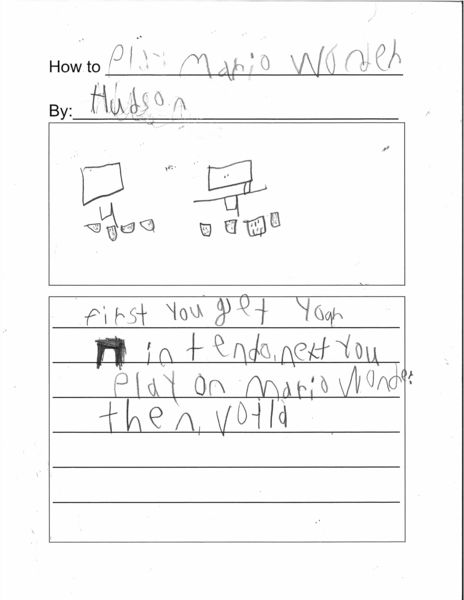 How to Play Mario Wonder
By: Hudson
first You get Your
n in tendo, next You
Play on Mario Wonder
then, voila